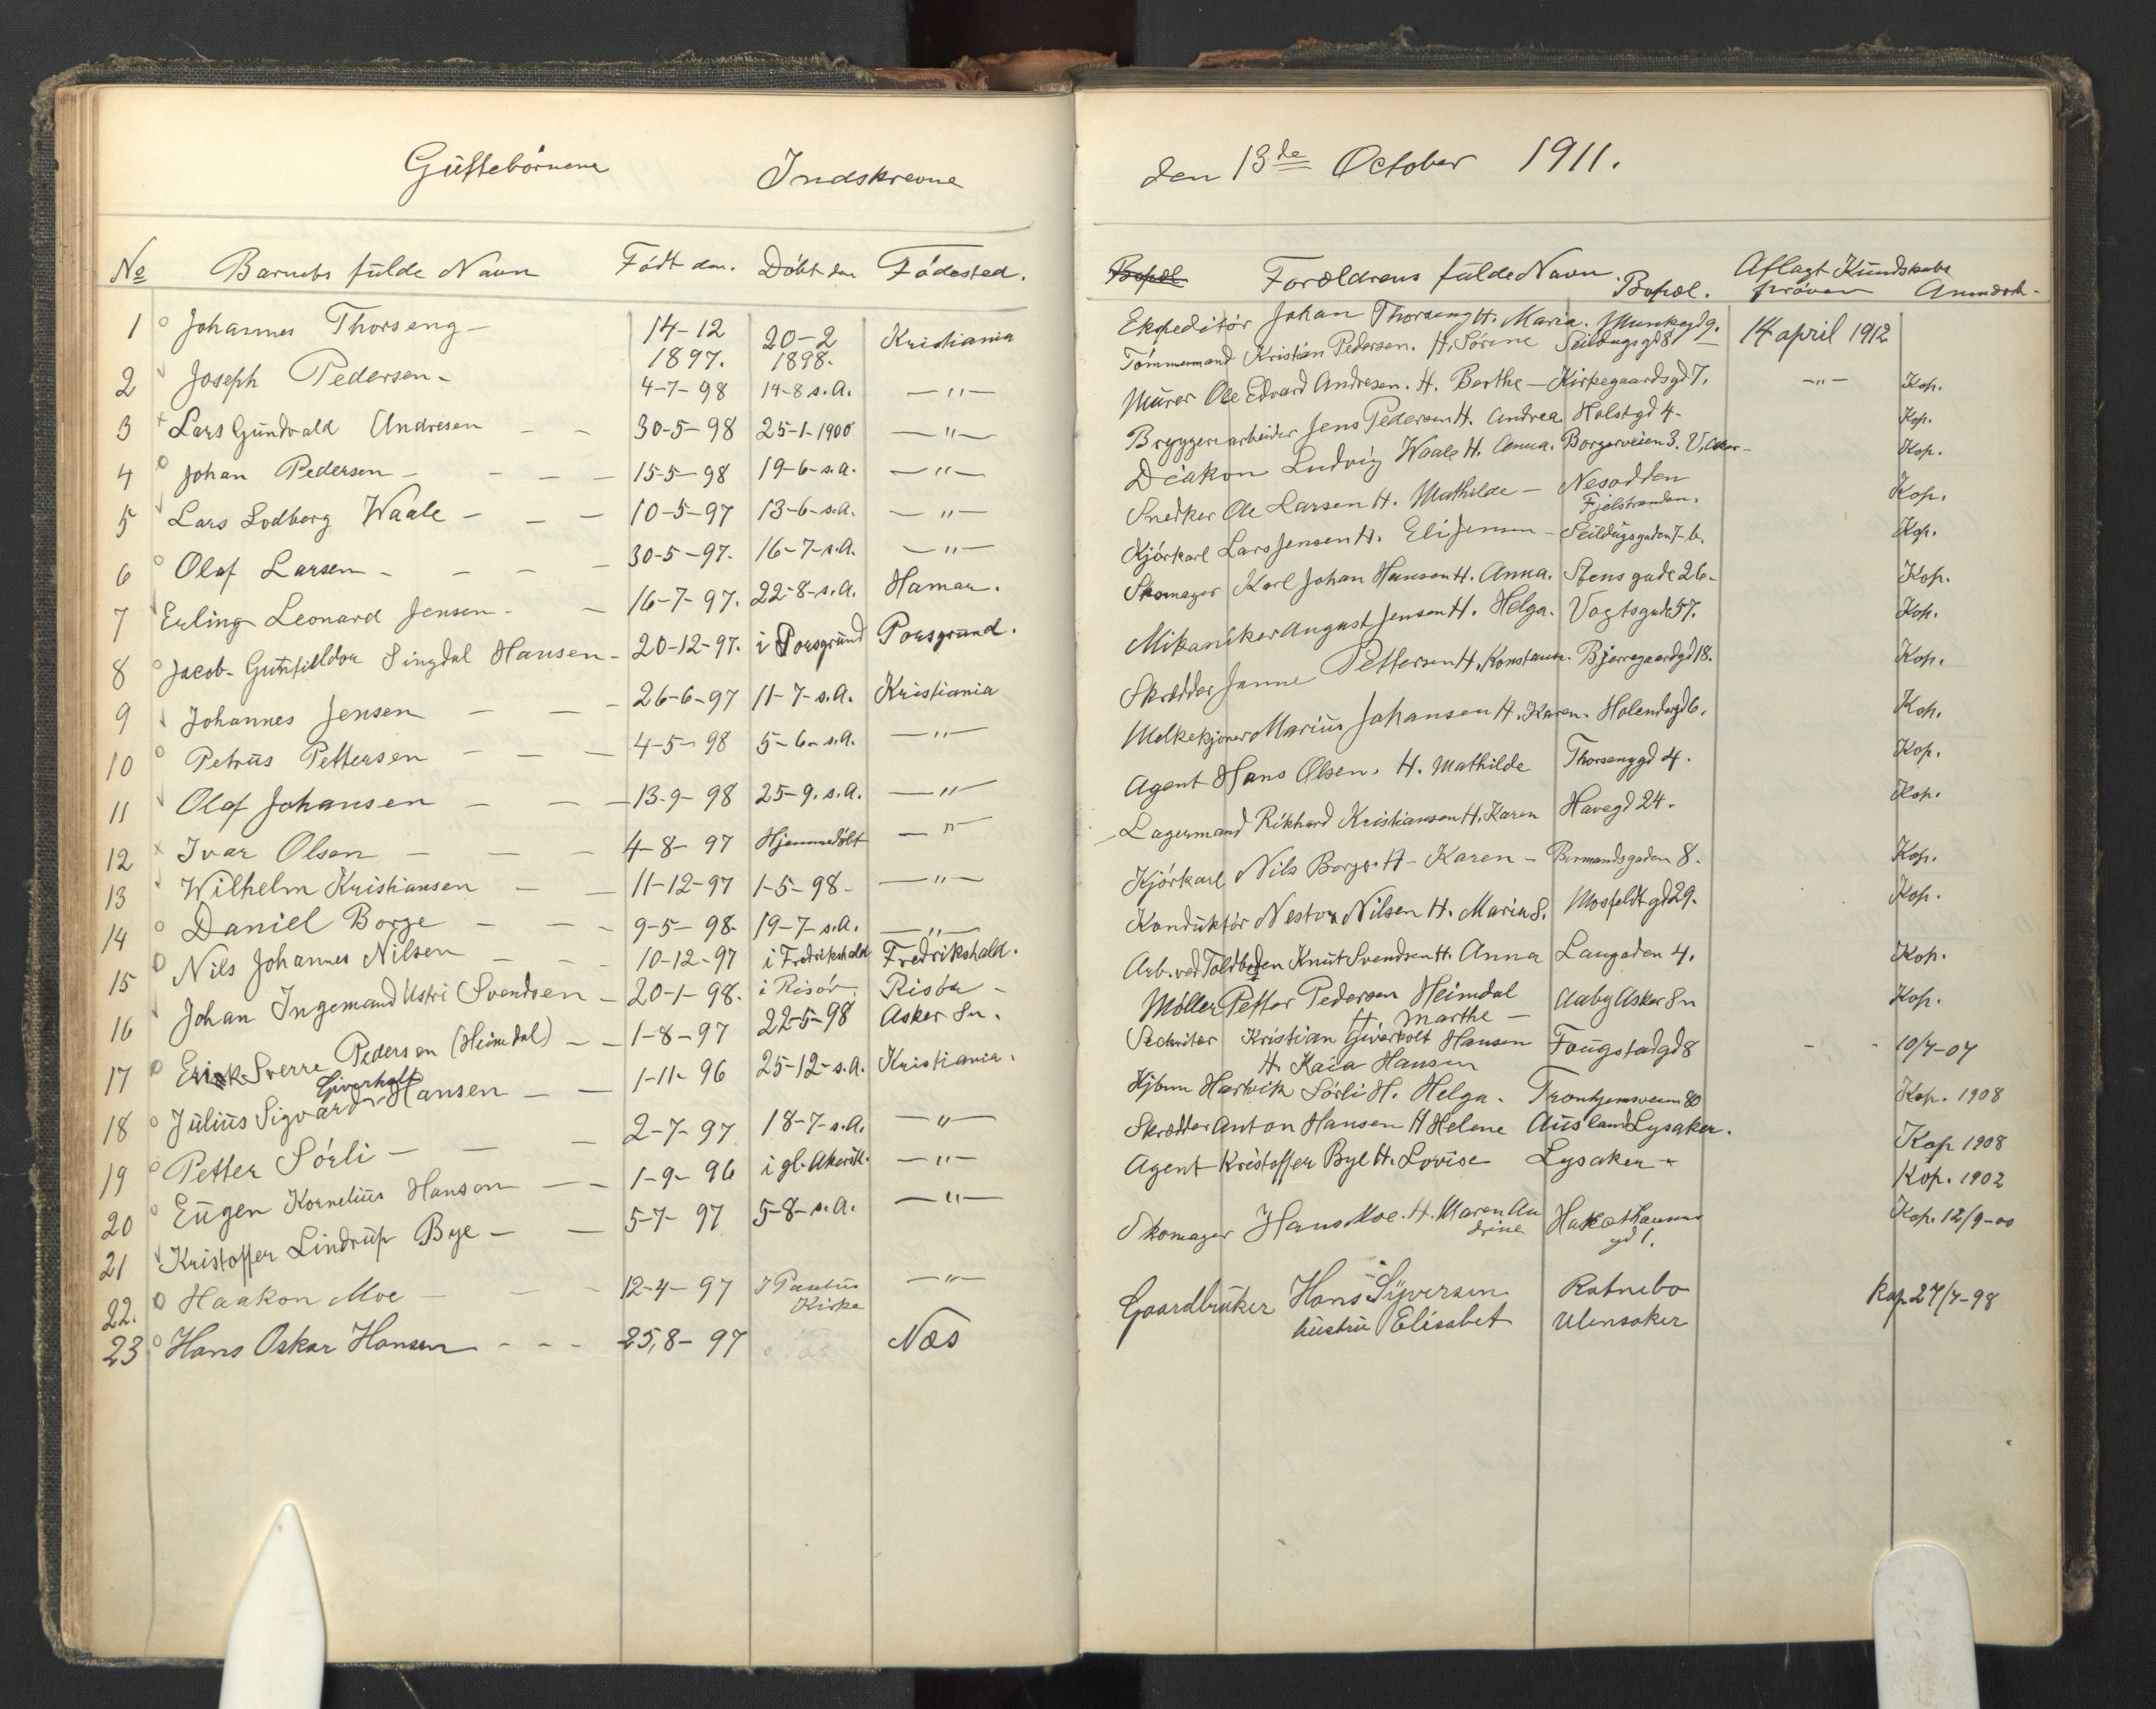 Guttebörnene Indskrevne
No Barnets fulde Navn Födt den. Döbt den Födested.
1 Johannes Thorseng - 14-12 1897. 20-2 1898. Kristiania
2 Joseph Pedersen - 4-7-98 14-8 s.A. -"-
3 Lars Gundvald Andresen - - 30-5-98 25-1-1900 -"-
4 Johan Pedersen - - - 15-5-98 19-6-s.a. -"-
5 Lars Lodberg Waale - - - 10-5-97 13-6-s.a. -"-
6 Olaf Larsen - - - - 30-5-97. 16-7-s.A. -"-
7 Erling Leonard Jensen - - 16-7-97. 22-8-s.A. Hamar.
8 Jacob Singdal Hansen - 20-12-97. i Porsgrund Porsgrund.
9 Johannes Jensen - - - 26-6-97 11-7-s.A. Kristiania
10 Petrus Pettersen - - - 4-5-98 5-6-s.A. -"-
11 Olaf Johansen - - - 13-9-98 25-9. s.A. -"-
12 Ivar Olsen - - - 4-8-97 Hjemmedöbt -"-
13 Wilhelm Kristiansen - - 11-12-97 1-5-98- -"-
14 Daniel Borge - - - 9-5-98- 19-7-s.A. -"-
15 Nils Johannes Nilsen - - - 10-12-97 i Fredrikshald Fredrikshald.
16 Johan Ingemand Ustri Svendsen - 20-1-98. i Risör Risör -
17 Erik Sverre Pedersen (Heimdal) - - 1-8-97 22-5-98 Asker Sn.
Giverholt
18 Julius Sigvard Hansen - - 1-11-96 25-12-s.A. Kristiania.
19 Petter Sörli - - - 2-7-97 18-7-s.A. -"-
20 Eugen Kornelius Hanson - - 1-9-96 i gl. Akerik. -"-
21 Kristoffer Lindrup Bye - - 5-7-97 5-8-s.A. -"-
22. Haakon Moe - - - 12-4-97 I Paulus Kirke -"-
23 Hans Oskar Hansen - - - 25,8-97 Næs
den 13de October 1911.
Bopæl Forældrens fulde Navn. Bopæl. Aflagt Kundskabs pröven Anmdrk-
Ekspeditör Johan Thorseng H. Maria. Munkegd 9. 14 april 1912
Tömmermand Kristian Pedersen. H. Sörine Seildugsgd 8 -"- Kop.
Murer Ole Edvard Andresen. H. Berthe - Kirkegaardsgd 7. Kop.
Bryggeriarbeider Jens Pedersen H. Andrea Holstgd 4- Kop.
Diakon Ludvig Waale H. Anna. Borgerveien 3. V. Aker- Kop.
Snedker Ole Larsen H. Mathilde - Nesodden Fjelstranden. Kop.
Kjörkarl Lars Jensen H. Eli Jensen - Seildugsgaden 7-b. Kop.
Skomager Karl Johan Hansen H. Anna. Stensgade 26- Kop.
Mikaniker August Jensen H. Helga. Vogtsgade 57. Kop.
Skrædder Janne Pettersen H. Konstanse. Bjerregaardgd 18. Kop.
Melkekjörer Marius Johansen H. Karen. Holendergd 6. Kop.
Agent Hans Olsen. H. Mathilde Thorsenggd 4. Kop.
Lagermand Rikhard Kristiansen H. Karen Havegd 24. Kop.
Kjörkarl Nils Borge. H- Karen - Birmandsgaden 8. Kop.
Konduktör Nestor Nilsen H. Maria S. Mosfeldt gd 29. Kop.
Arb. ved Toldboden Knut Svendsen H. Anna Langaden 4. Kop.
Möller Petter Pedersen Heimdal H. Marthe - Aaby Asker Sn Kop.
Sekritær Kristian Giverholt Hansen Fougstadgd 8 - - 10/7-07
H. Kaia Hansen
Hjbm Hartvik Sörli H. Helga. Trontjemsveien 80 Kop. 1908
Skrædder Anton Hansen H Helene Ausland Lysaker. Kop 1908
Agent Kristoffer Bye H. Lovise Lysaker - Kop. 1902
Skomager Hans Moe. H. Maren Andrine gd 1. Kop. 12/9-00
Gaardbruker Hans Syversen Ratnebo Kop 27/7-98
hustru Elisabet Ulensaker